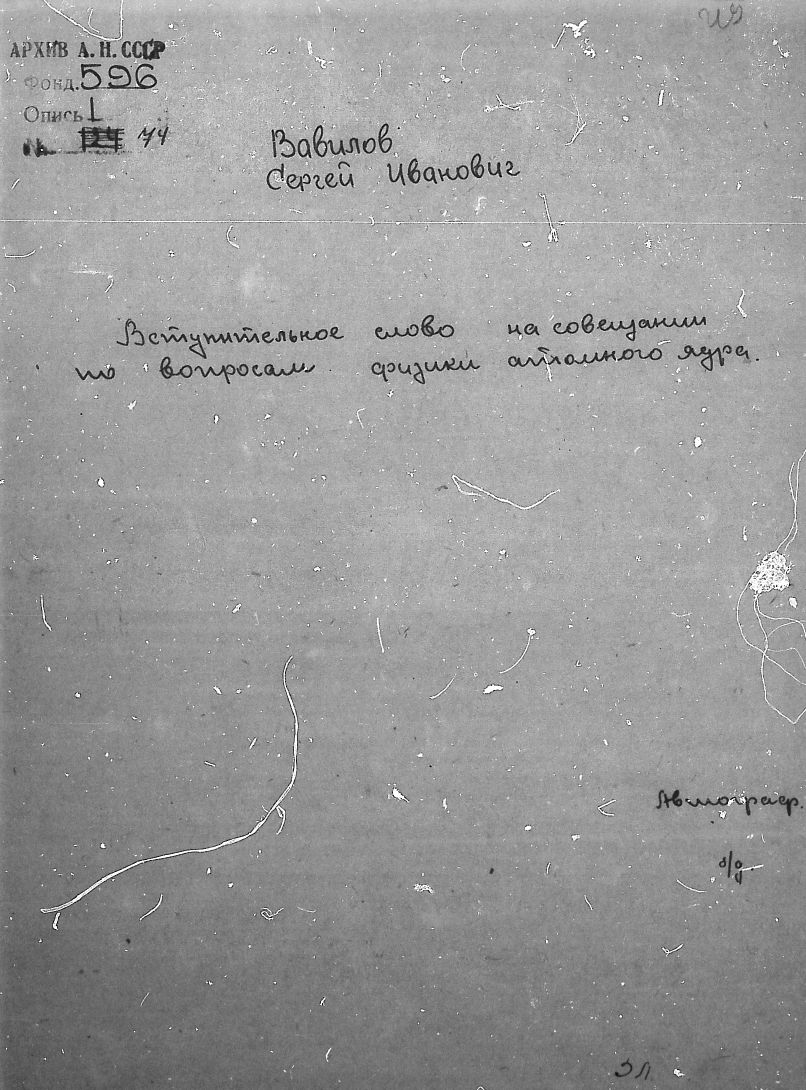 АРХИВ А. Н. СССР
Фонд. 596
Опись 1
№ 74
Вавилов
Сергей Иванович
Вступительное слово на совещании
по вопросам физики атомного ядра.
Автограф.
б/д.